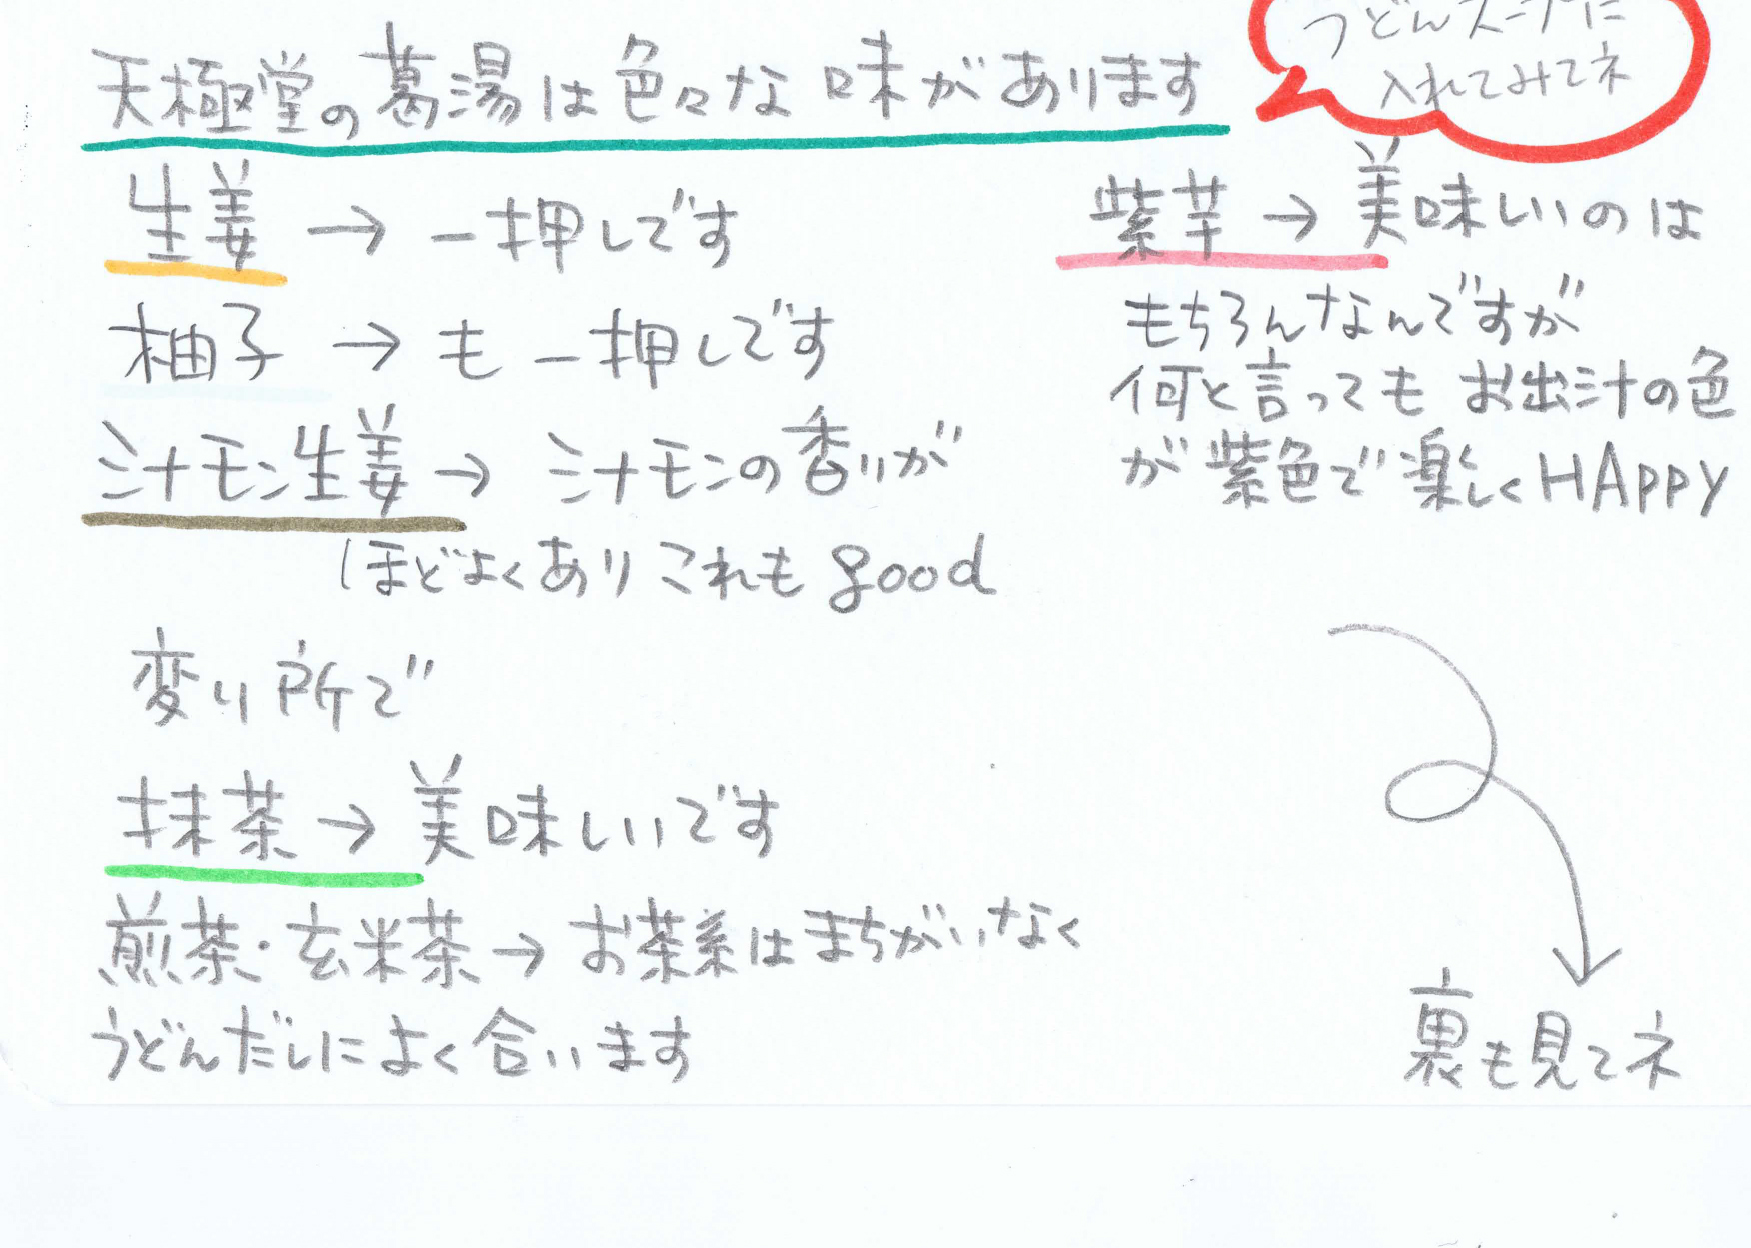 天極堂の葛湯は色々な味があります
うどんスープに
入れてみてネ
生姜→一押しです
柚子→も一押しです
シナモン生姜→シナモンの香りが
ほどよくありこれもgood
変り所で
抹茶→美味しいです
煎茶・玄米茶→お茶系はまちがいなく
うどんだしによく合います
紫芋→美味しいのは
もちろんなんですが
何と言ってもお出汁の色
が紫色で楽しくHAppy
裏も見てネ